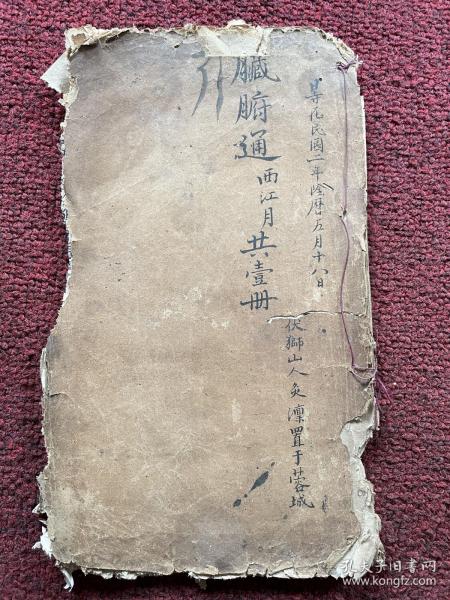 民國二年陰曆五月十八日
伏獅山人灸凜置于蓉城
臟腑通西江月共壹冊
孔夫子旧书网
www.kongfz.com